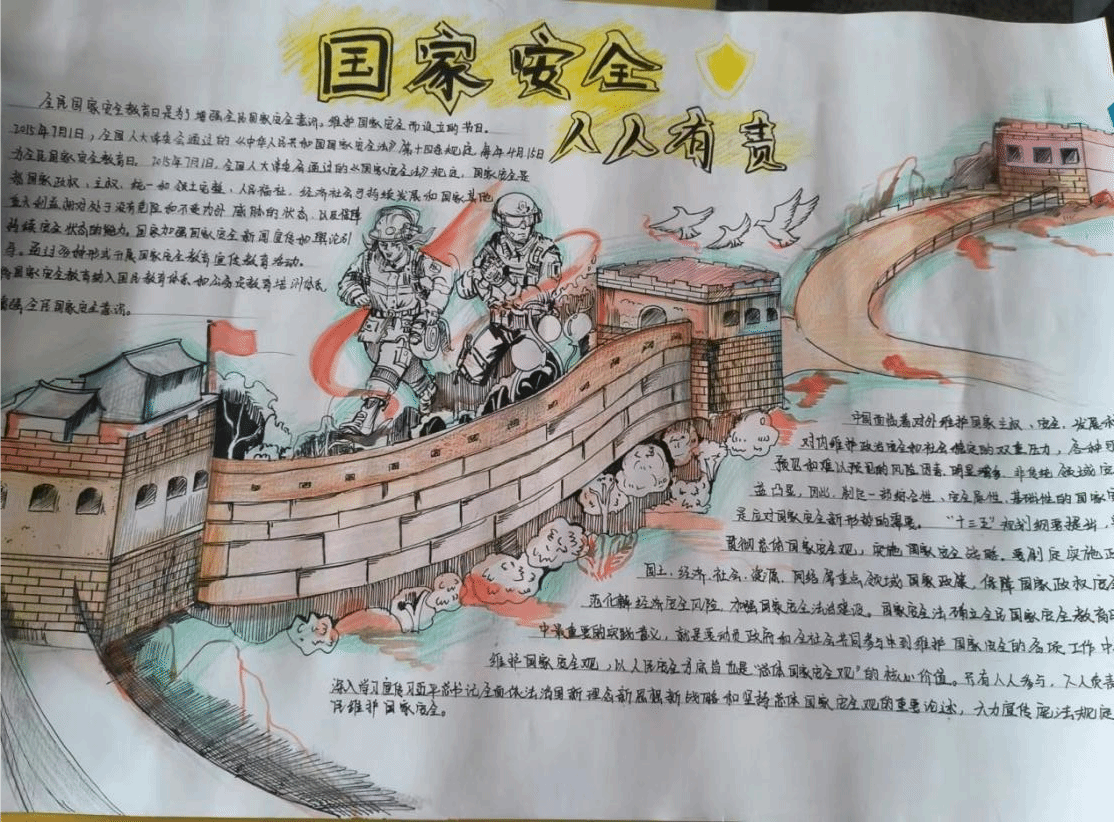 国家安全
人人有责
全民国家安全教育日是为了增强全民国家安全意识，维护国家安全而设立的节日。
2015年7月1日，全国人大常委会通过的《中华人民共和国国家安全法》第十四条规定，每年4月15日
为全民国家安全教育日。2015年7月1日，全国人大常委会通过的《国家安全法》规定，国家安全是
指国家政权、主权、统一和领土完整、人民福祉、经济社会可持续发展和国家其他
重大利益相对处于没有危险和不受内外威胁的状态，以及保障
持续安全状态的能力。国家加强国家安全新闻宣传和舆论引
导。通过多种形式开展国家安全教育宣传教育活动。
将国家安全教育纳入国民教育体系和公务员教育培训体系，
增强全民国家安全意识。
中国面临着对外维护国家主权、安全、发展
对内维护政治安全和社会稳定的双重压力，各种可
预见和难以预见的风险因素明显增多，非传统领域安
益凸显，因此，制定一部综合性、全局性、基础性的国家
是应对国家安全新形势的需要。“十三五”规划纲要提出，
贯彻总体国家安全观，实施国家安全战略。要制定实施政
国土、经济、社会、资源、网络等重点领域国家政策，保障国家政权
范化解经济安全风险，加强国家安全法治建设。国家安全法确立全民国家安全教育日
中最重要的实践意义，就是要动员政府和全社会共同参与来到维护国家安全的各项工作中
维护国家安全观，以人民安全为宗旨也是“总体国家安全观”的核心价值。只有人人参与，人人负责
深入学习宣传习近平总书记全面依法治国新理念新思想新战略和坚持总体国家安全观的重要论述，大力宣传宪法规定
民维护国家安全。